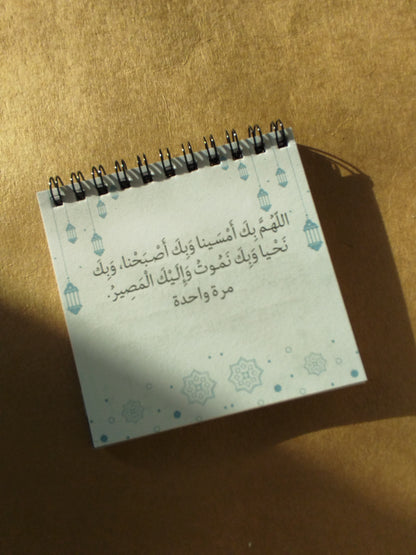 اللَّهُمَّ بِكَ أَمْسَينا وَبِكَ أَصْبَحْنا، وَبِكَ
نَحْيا وَبِكَ نَمُوتُ وَإِلَيْكَ الْمَصِيرُ.
مرة واحدة